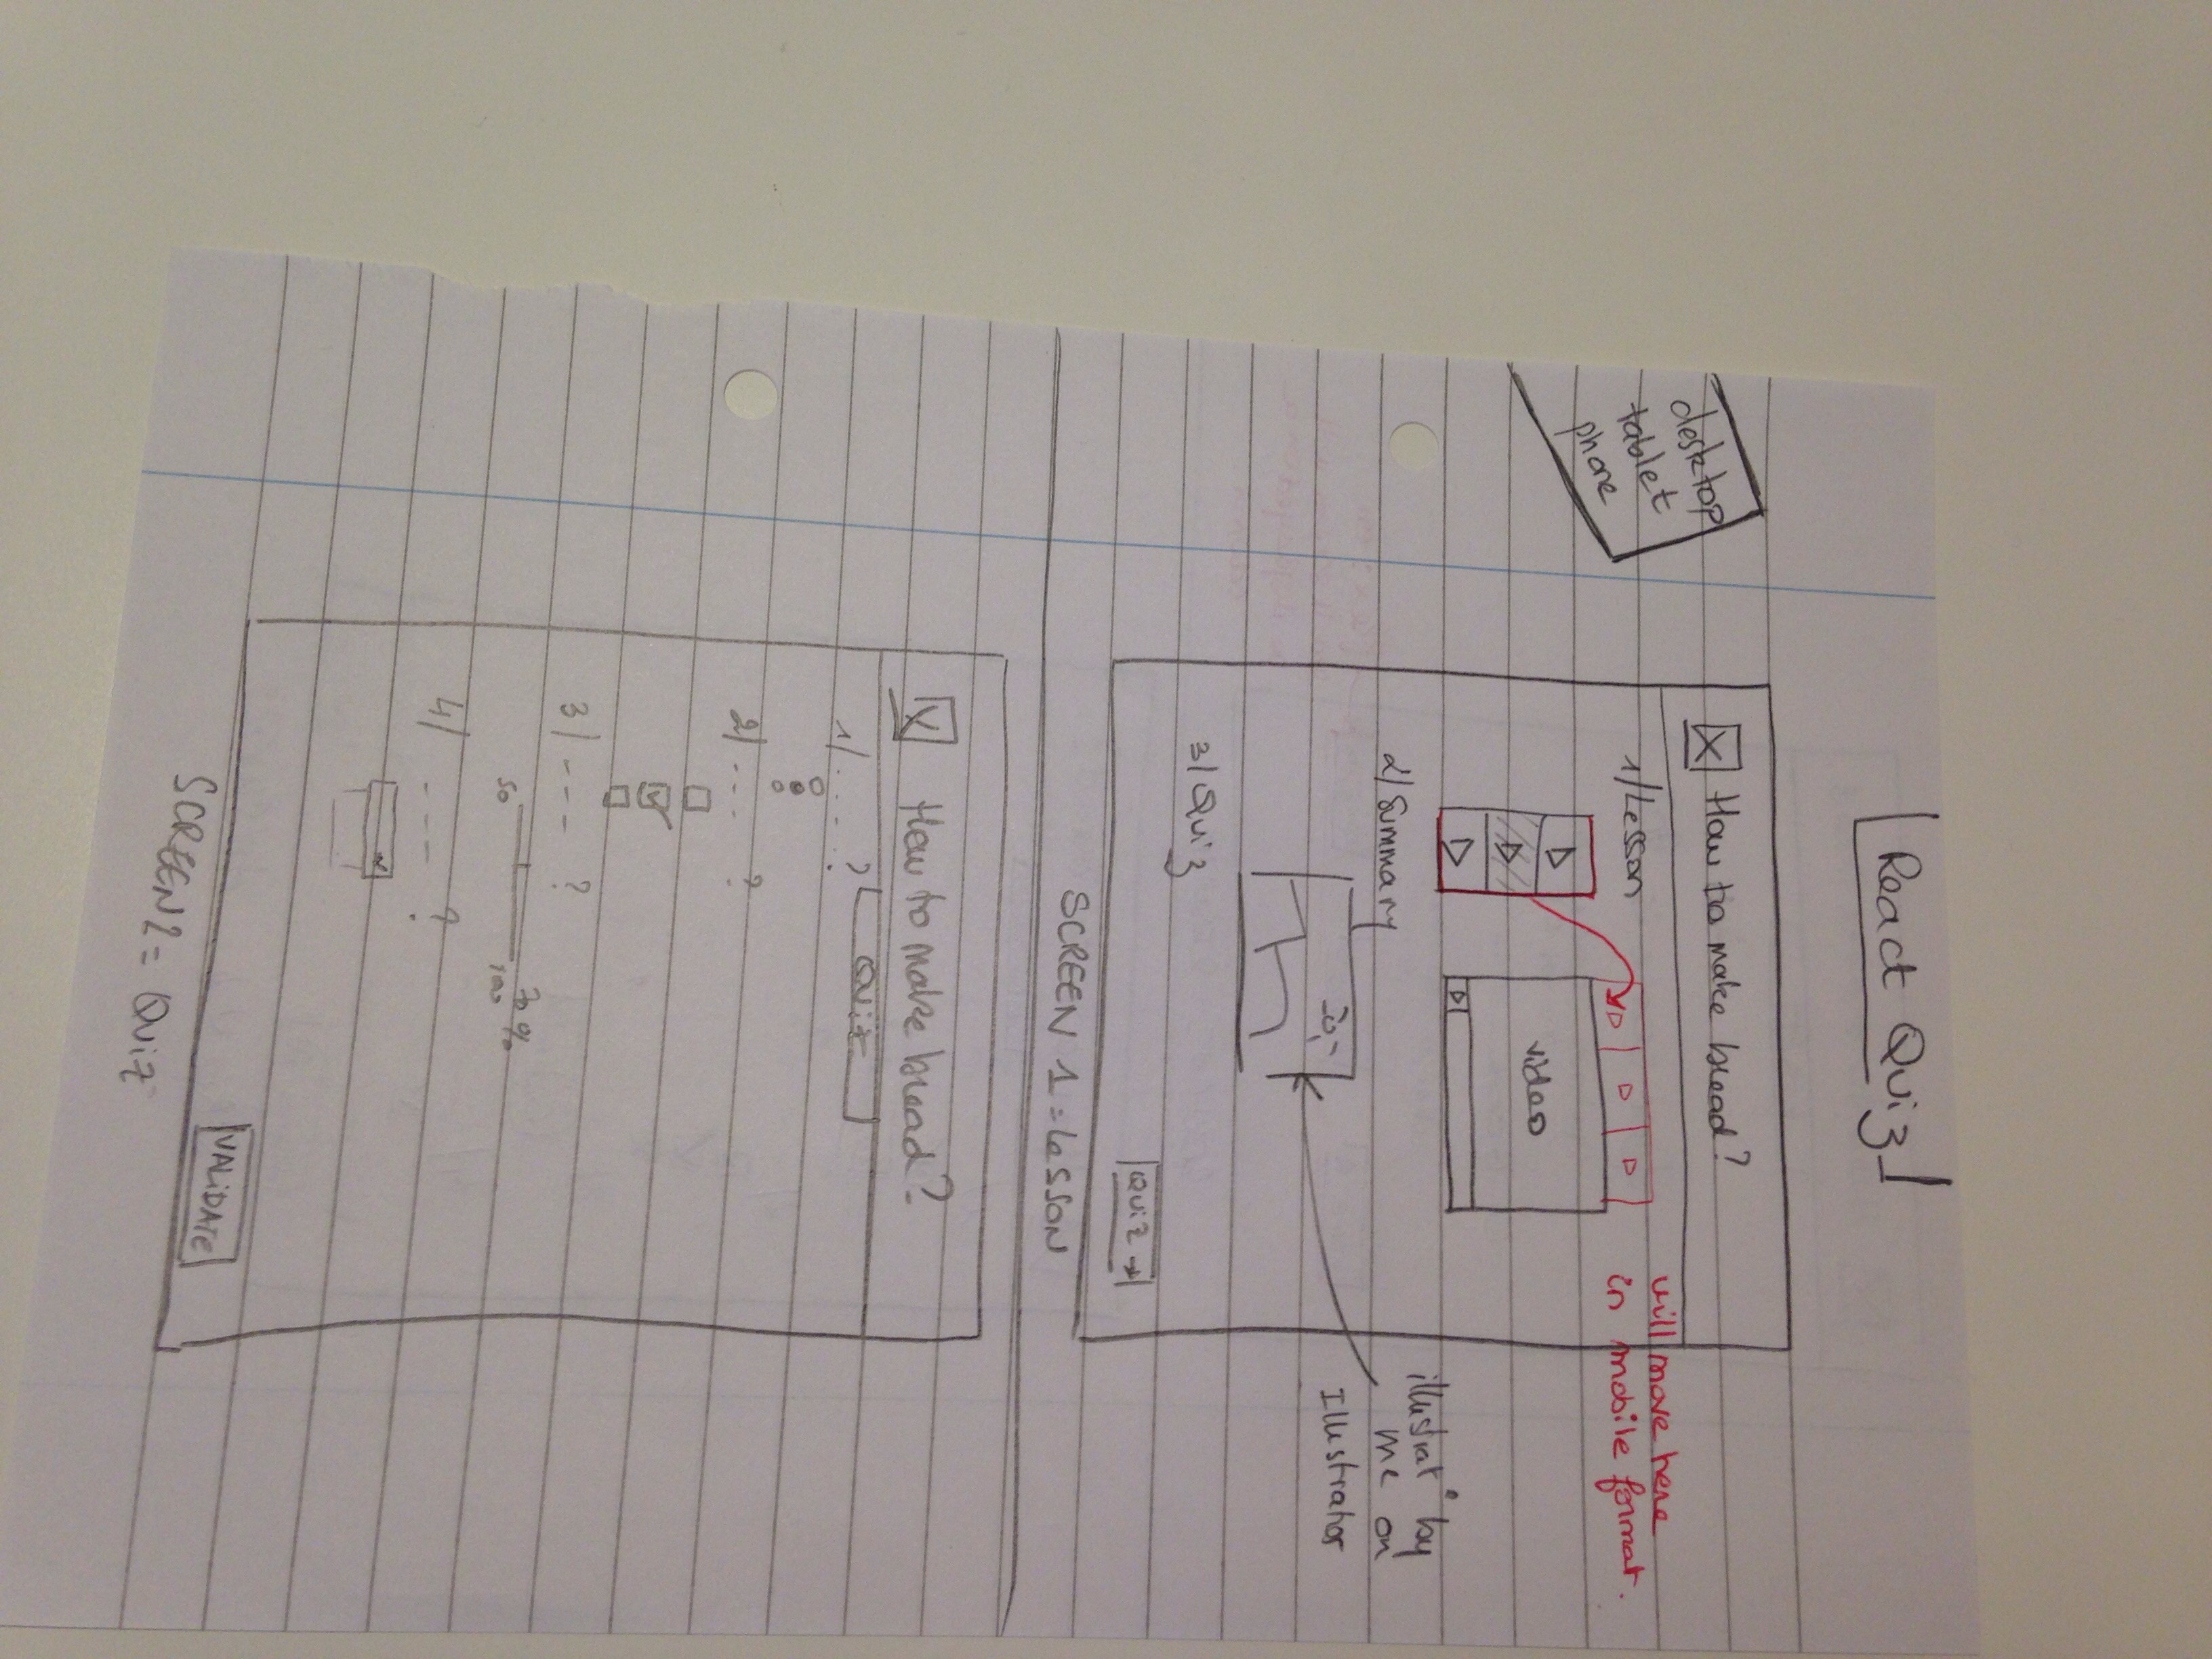 React Quiz
desktop
tablet
phone
How to make bread?
1/ Lesson
will move here
in mobile format.
video
2/ Summary
illustrat° by
me on
Illustrator
3/ Quiz
Quiz →
SCREEN 1 = Lesson
How to make bread?
Quiz
1/ . . . . ?
2/ - - . ?
3/ - - - ?
50
100
70%
4/ - - - ?
VALIDATE
SCREEN 2 = Quiz